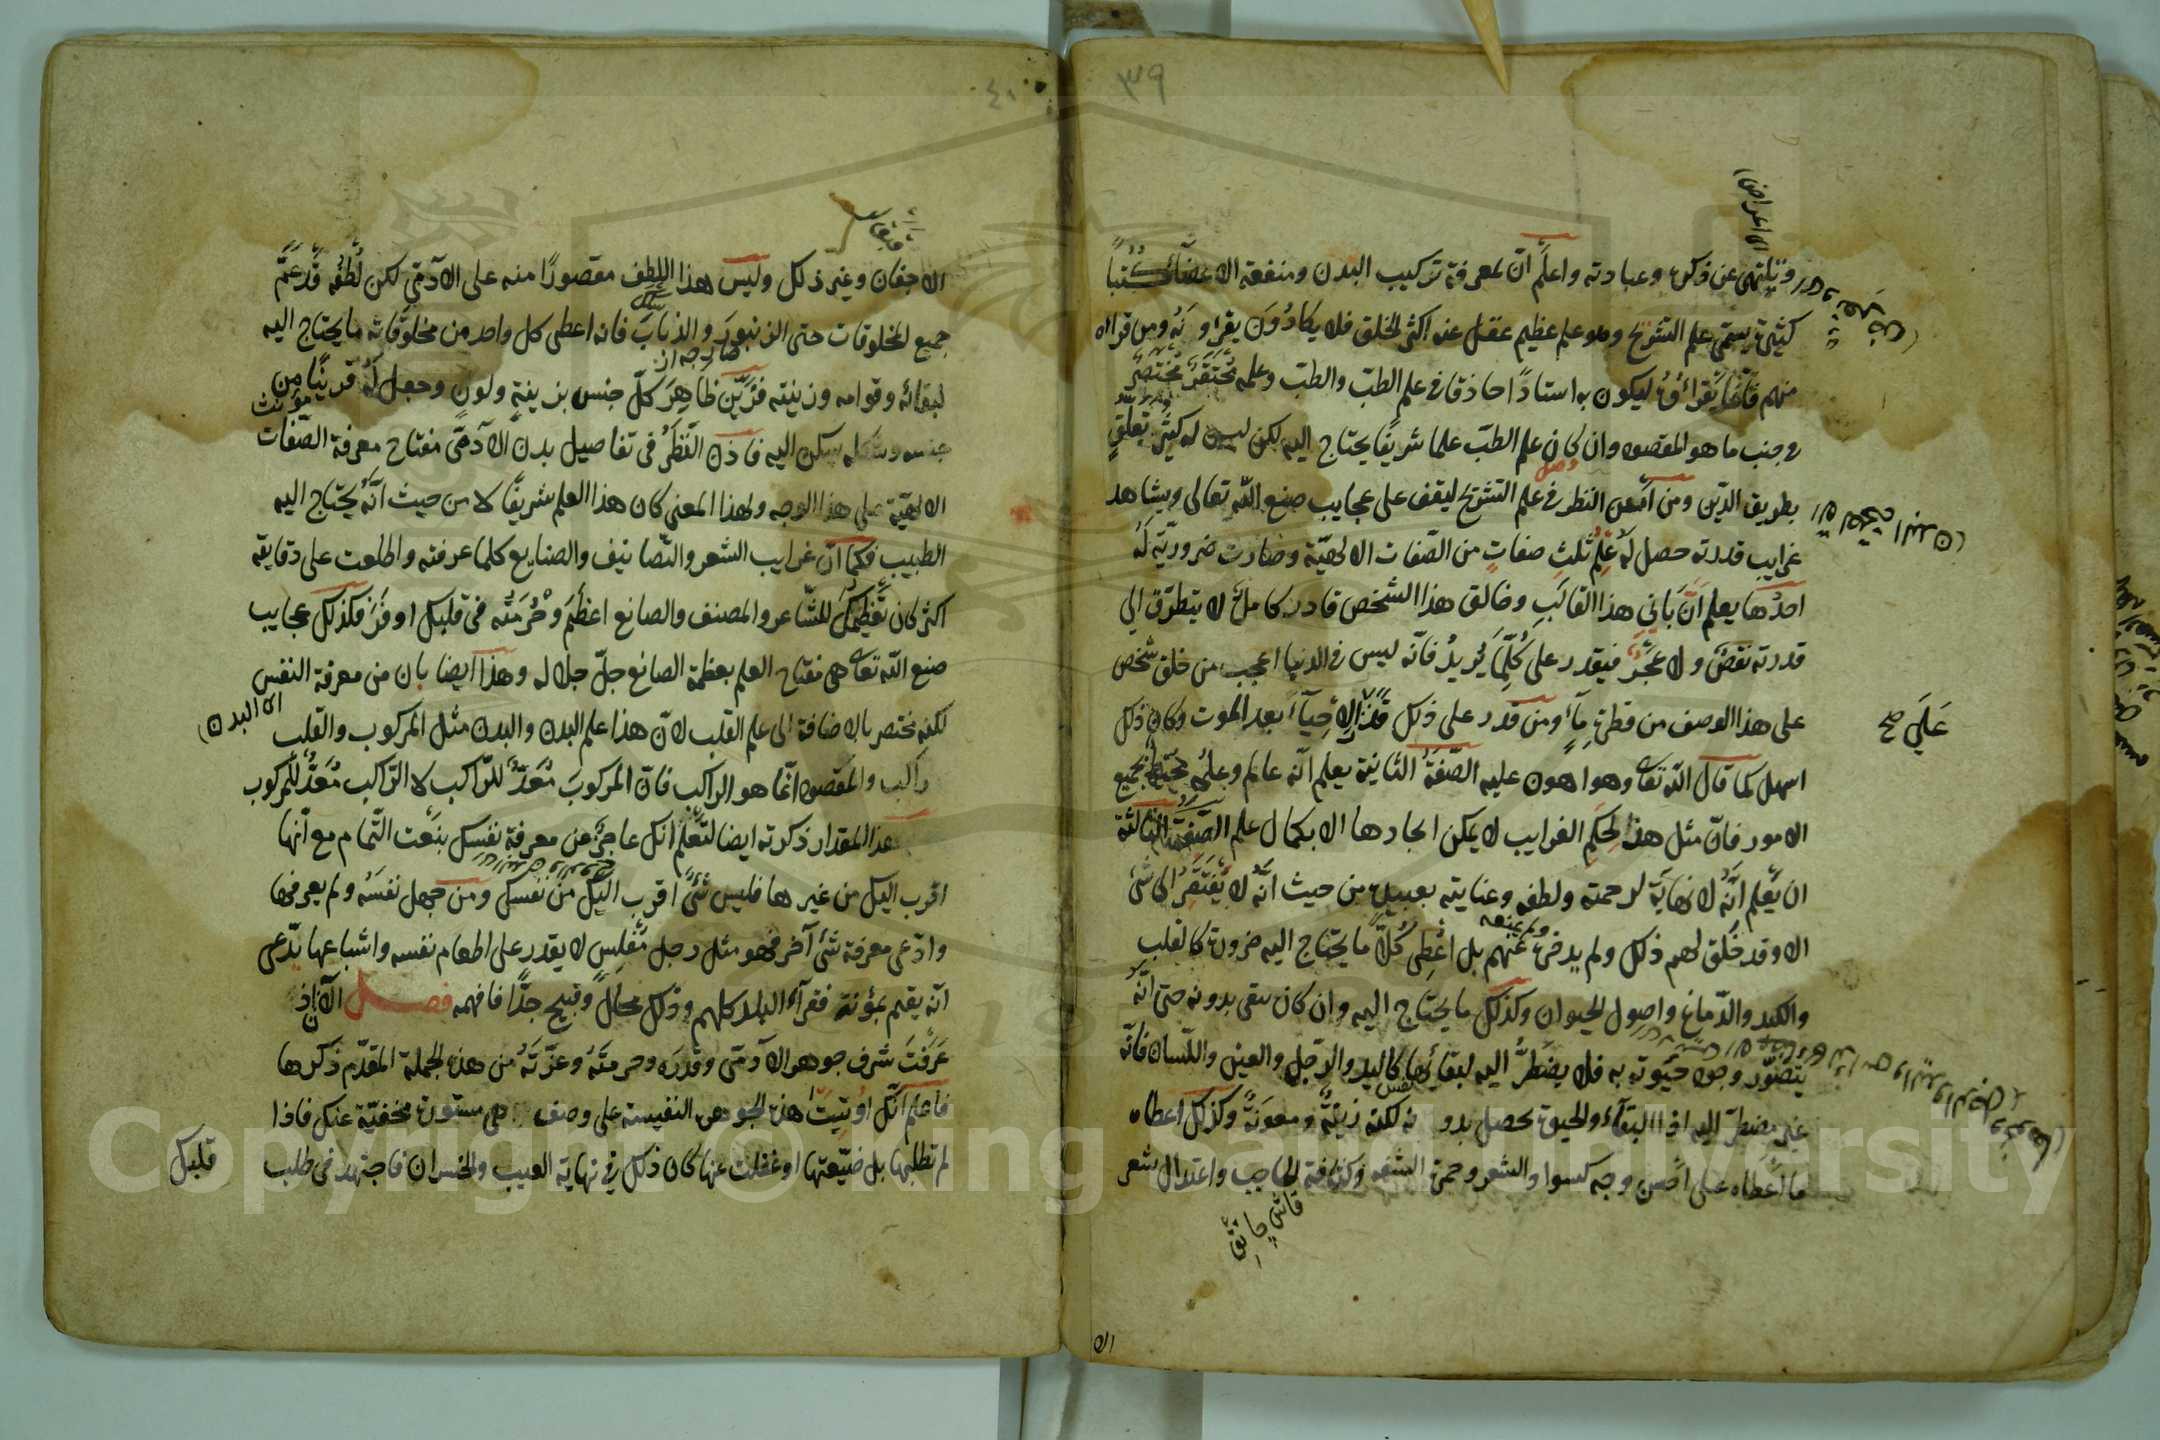 ٣٩
ويلتهى عن ذكره وعبادته واعلم ان لمعرفة تركيب البدن ومنفعة الاعضاء كتبًا
كثيرة يسمى علم التشريح وهو علم عظيم غفل عنه اكثر الخلق فلا يكادون يقراونه ومن قراه
منهم فانما يقرائه ليكون به استاذا حاذقا فى علم الطب والطب وعلمه محتقر مختصر
فى جنب ما هو المقصود وان كان علم الطب علما شريفا يحتاج اليه لكن ليس له كثير تعلق
بطريق الدين ومن امعن النظر فى علم التشريح ليقف على عجايب صنع الله تعالى ويشاهد
غرايب قدرته حصل له علم ثلث صفات من الصفات الالهية وصارت ضرورية له
احدها يعلم ان باني هذا القالب وخالق هذا الشخص قادر كامل لا يتطرق الى
قدرته نقص ولا عجز فيقدر على كلما يريد فانه ليس فى الدنيا اعجب من خلق شخص
على هذا الوصف من قطرة ماء ومن قدر على ذلك قدر الاحياء بعد الموت وكان ذلك
على صح
اسهل كما قال الله تعالى وهو اهون عليه الصفة الثانية يعلم انه عالم وعلمه محيط بجميع
الامور فان مثل هذا الحكم الغرايب لا يمكن ايجادها الا بكمال علم الصفة الثالثة
ان يعلم انه لا نهاية لرحمته ولطفه وعنايته بعبيده من حيث انه لا يفتقر الى شئ
الا وقد خلق لهم ذلك ولم يدخره عنهم بل اعطى كلا ما يحتاج اليه ضرورة كالقلب
والكبد والدماغ واصول الحيوان وكذلك ما يحتاج اليه وان كان يبقى بدونه حتى انه
يتصور وجود حيوته به فلا يضطر اليه لبقائها كاليد والرجل والعين واللسان فانه
غير مضطر اليه اذا البقاء والحيوة يحصل بدونه لكنه زينة ومعونة وكذلك اعطاه
ما اعطاه على احسن وجه كسواد الشعر وحمرة الشفه وكثافة الحاجب واعتدال شعر
٤٠
الاجفان وغير ذلك وليس هذا اللطف مقصورًا منه على الآدمي لكن لطفه قد عم
جميع المخلوقات حتى الزنبور والذباب فانه اعطى كل واحد من مخلوقاته ما يحتاج اليه
لبقائه وقوامه وزينته فزين ظاهر كل جنس بزينة ولون وجعل له قرينا من
جنسه وشكله يسكن اليه فاذن النظر فى تفاصيل بدن الآدمى مفتاح معرفة الصفات
الالهية على هذا الوجه ولهذا المعنى كان هذا العلم شريفًا لا من حيث انه يحتاج اليه
الطبيب فكما ان غرايب الشعر والتصانيف والصنايع كلما عرفته واطلعت على دقايقه
اكثر كان تعظيمك للشاعر والمصنف والصانع اعظم وحرمته فى قلبك اوفر فكذلك عجايب
صنع الله تعالى هى مفتاح العلم بعظمة الصانع جل جلاله وهذا ايضا بان من معرفة النفس
لكنه مختصر بالاضافة الى علم القلب لان هذا علم البدن والبدن مثل المركوب والقلب
راكب والمقصود انما هو الراكب فان المركوب معد للراكب لا الراكب معد للمركوب
هذا المقدار ذكرته ايضا لتعلم انك عاجز عن معرفة نفسك بنعت التمام مع انها
اقرب اليك من غيرها فليس شئ اقرب اليك من نفسك ومن جهل نفسه ولم يعرفها
وادعى معرفة شئ آخر فهو مثل رجل مفلس لا يقدر على اطعام نفسه واشباعها يدعى
انه يقيم بمؤنة فقرآء البلد كلهم وذلك محال وقبيح جدًا فافهمه فصل الآن اذ
عرفت شرف جوهر الآدمى وقدره وحرمته وعزته من هذه الجملة المقدم ذكرها
فاعلم انك اوتيت هذه الجوهرة النفيسة على وصف هى مستورة مخفية عنك فاذا
لم تطلبها بل ضيعتها او غفلت عنها كان ذلك فى نهاية العيب والخسران فاجتهد فى طلب
قلبك
Copyright © King Saud University